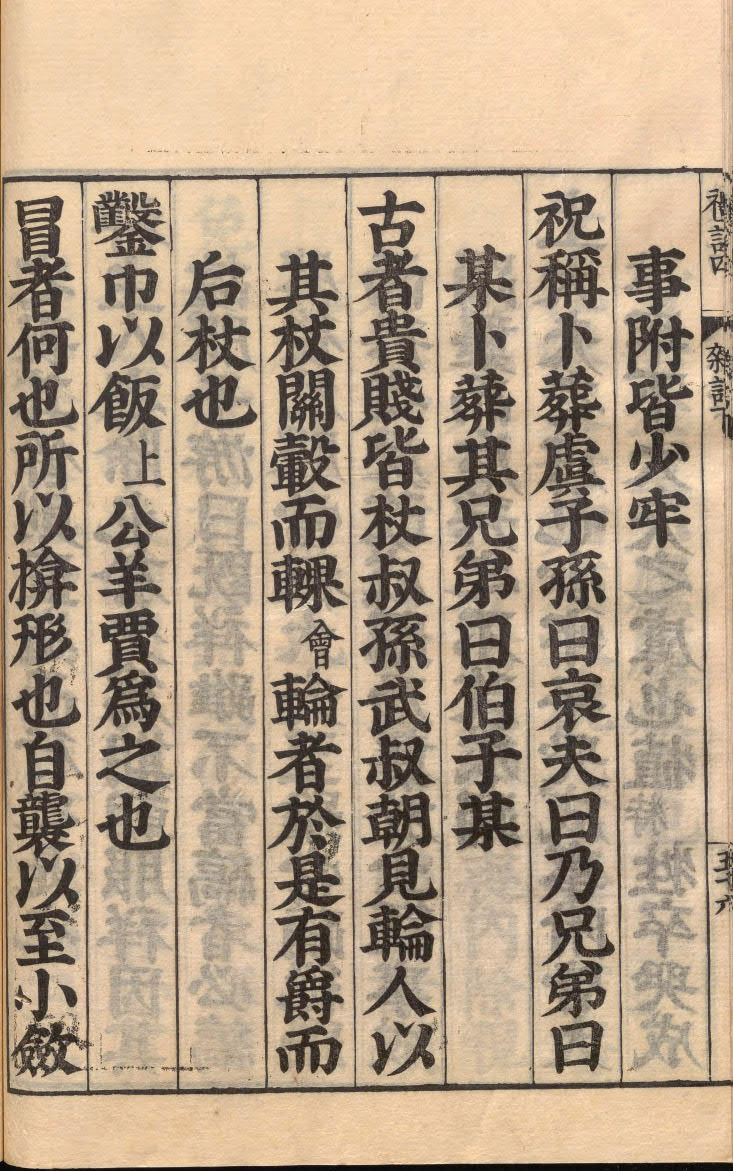 禮記四
雜記下
五十六
事附皆少牢
祝稱卜葬虞子孫曰哀夫曰乃兄弟曰
某卜葬其兄弟曰伯子某
古者貴賤皆杖叔孫武叔朝見輪人以
其杖關轂而輠會輪者於是有爵而
后杖也
鑿巾以飯上公羊賈爲之也
冒者何也所以揜形也自襲以至小斂